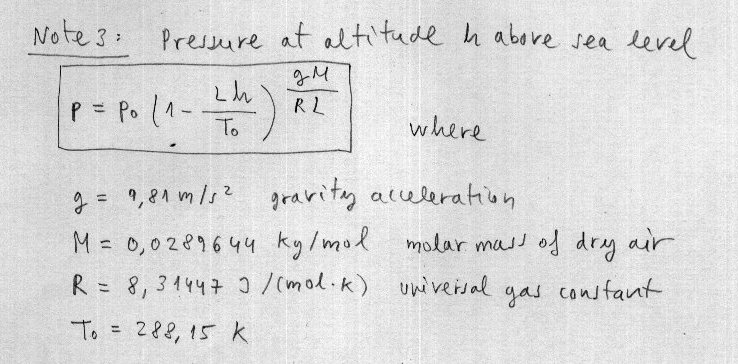 Note 3: Pressure at altitude h above sea level
p = p₀ (1 - Lh/T₀)^(gM/RL) where
g = 9,81 m/s² gravity acceleration
M = 0,0289644 kg/mol molar mass of dry air
R = 8,31447 J/(mol·K) universal gas constant
T₀ = 288,15 K